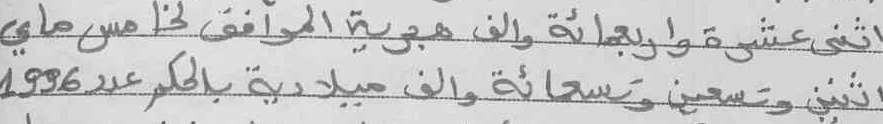 اثنى عشرة واربعمائة والف هجرية الموافق لخامس ماي
اثنين وتسعين وتسعمائة والف ميلادية بالحكم عدد 1996